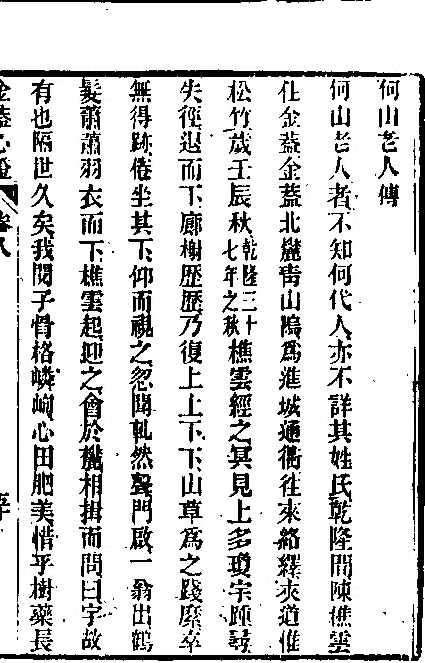 何山老人傳
何山老人者不知何代人亦不詳其姓氏乾隆間陳樵雲
住金蓋金蓋北麓靑山隖爲進城通衢往來絡繹夾道惟
松竹歲壬辰秋乾隆三十七年之秋樵雲經之冥見上多瓊宗踵尋
失徑退而下廊榭歷歷乃復上上下下山草爲之踐縻卒
無得跡倦坐其下仰而視之忽聞軋然聲門啟一翁出鶴
髮蕭蕭羽衣而下樵雲起迎之會於巉相揖而問曰字故
有也隔世久矣我閱子骨格嶙峋心田肥美惜乎樹藥長
金蓋心燈 卷八